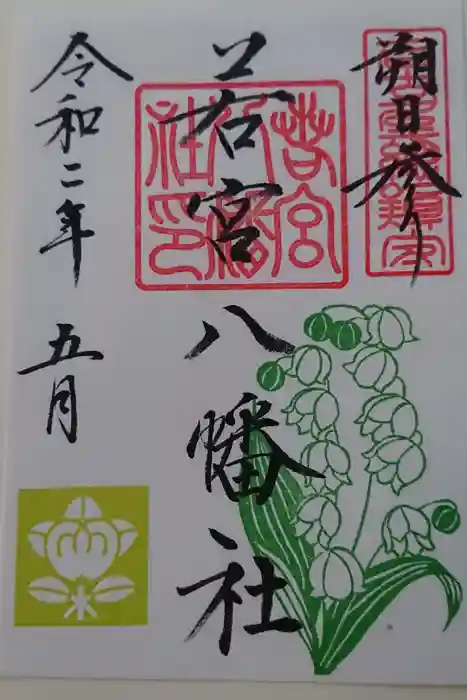 朔日参り
若宮八幡社
令和二年 五月
若宮八幡社印